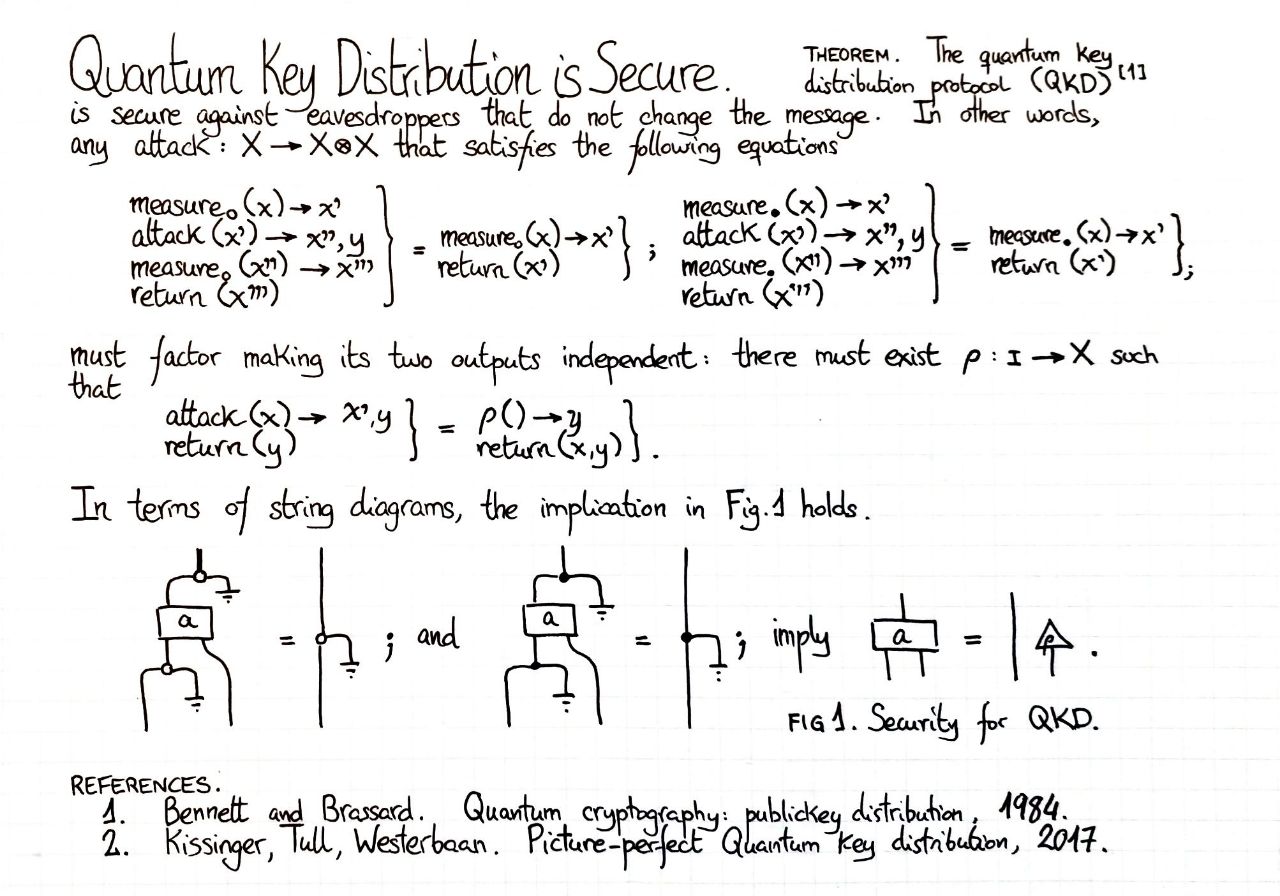 Quantum Key Distribution is Secure. THEOREM. The quantum key
distribution protocol (QKD) [1]
is secure against eavesdroppers that do not change the message. In other words,
any attack : X → X⊗X that satisfies the following equations
measure○(x) → x'
attack (x') → x'', y
measure○(x'') → x'''
return (x''')
} = measure○(x) → x'
return (x') } ;
measure●(x) → x'
attack (x') → x'', y
measure●(x'') → x'''
return (x''')
} = measure●(x) → x'
return (x') } ;
must factor making its two outputs independent: there must exist ρ : I → X such
that
attack (x) → x', y } = ρ() → y
return (y) return (x,y) } .
In terms of string diagrams, the implication in Fig.1 holds.
a = ; and a = ; imply a = ρ .
FIG 1. Security for QKD.
REFERENCES.
1. Bennett and Brassard. Quantum cryptography: publickey distribution, 1984.
2. Kissinger, Tull, Westerbaan. Picture-perfect Quantum Key distribution, 2017.